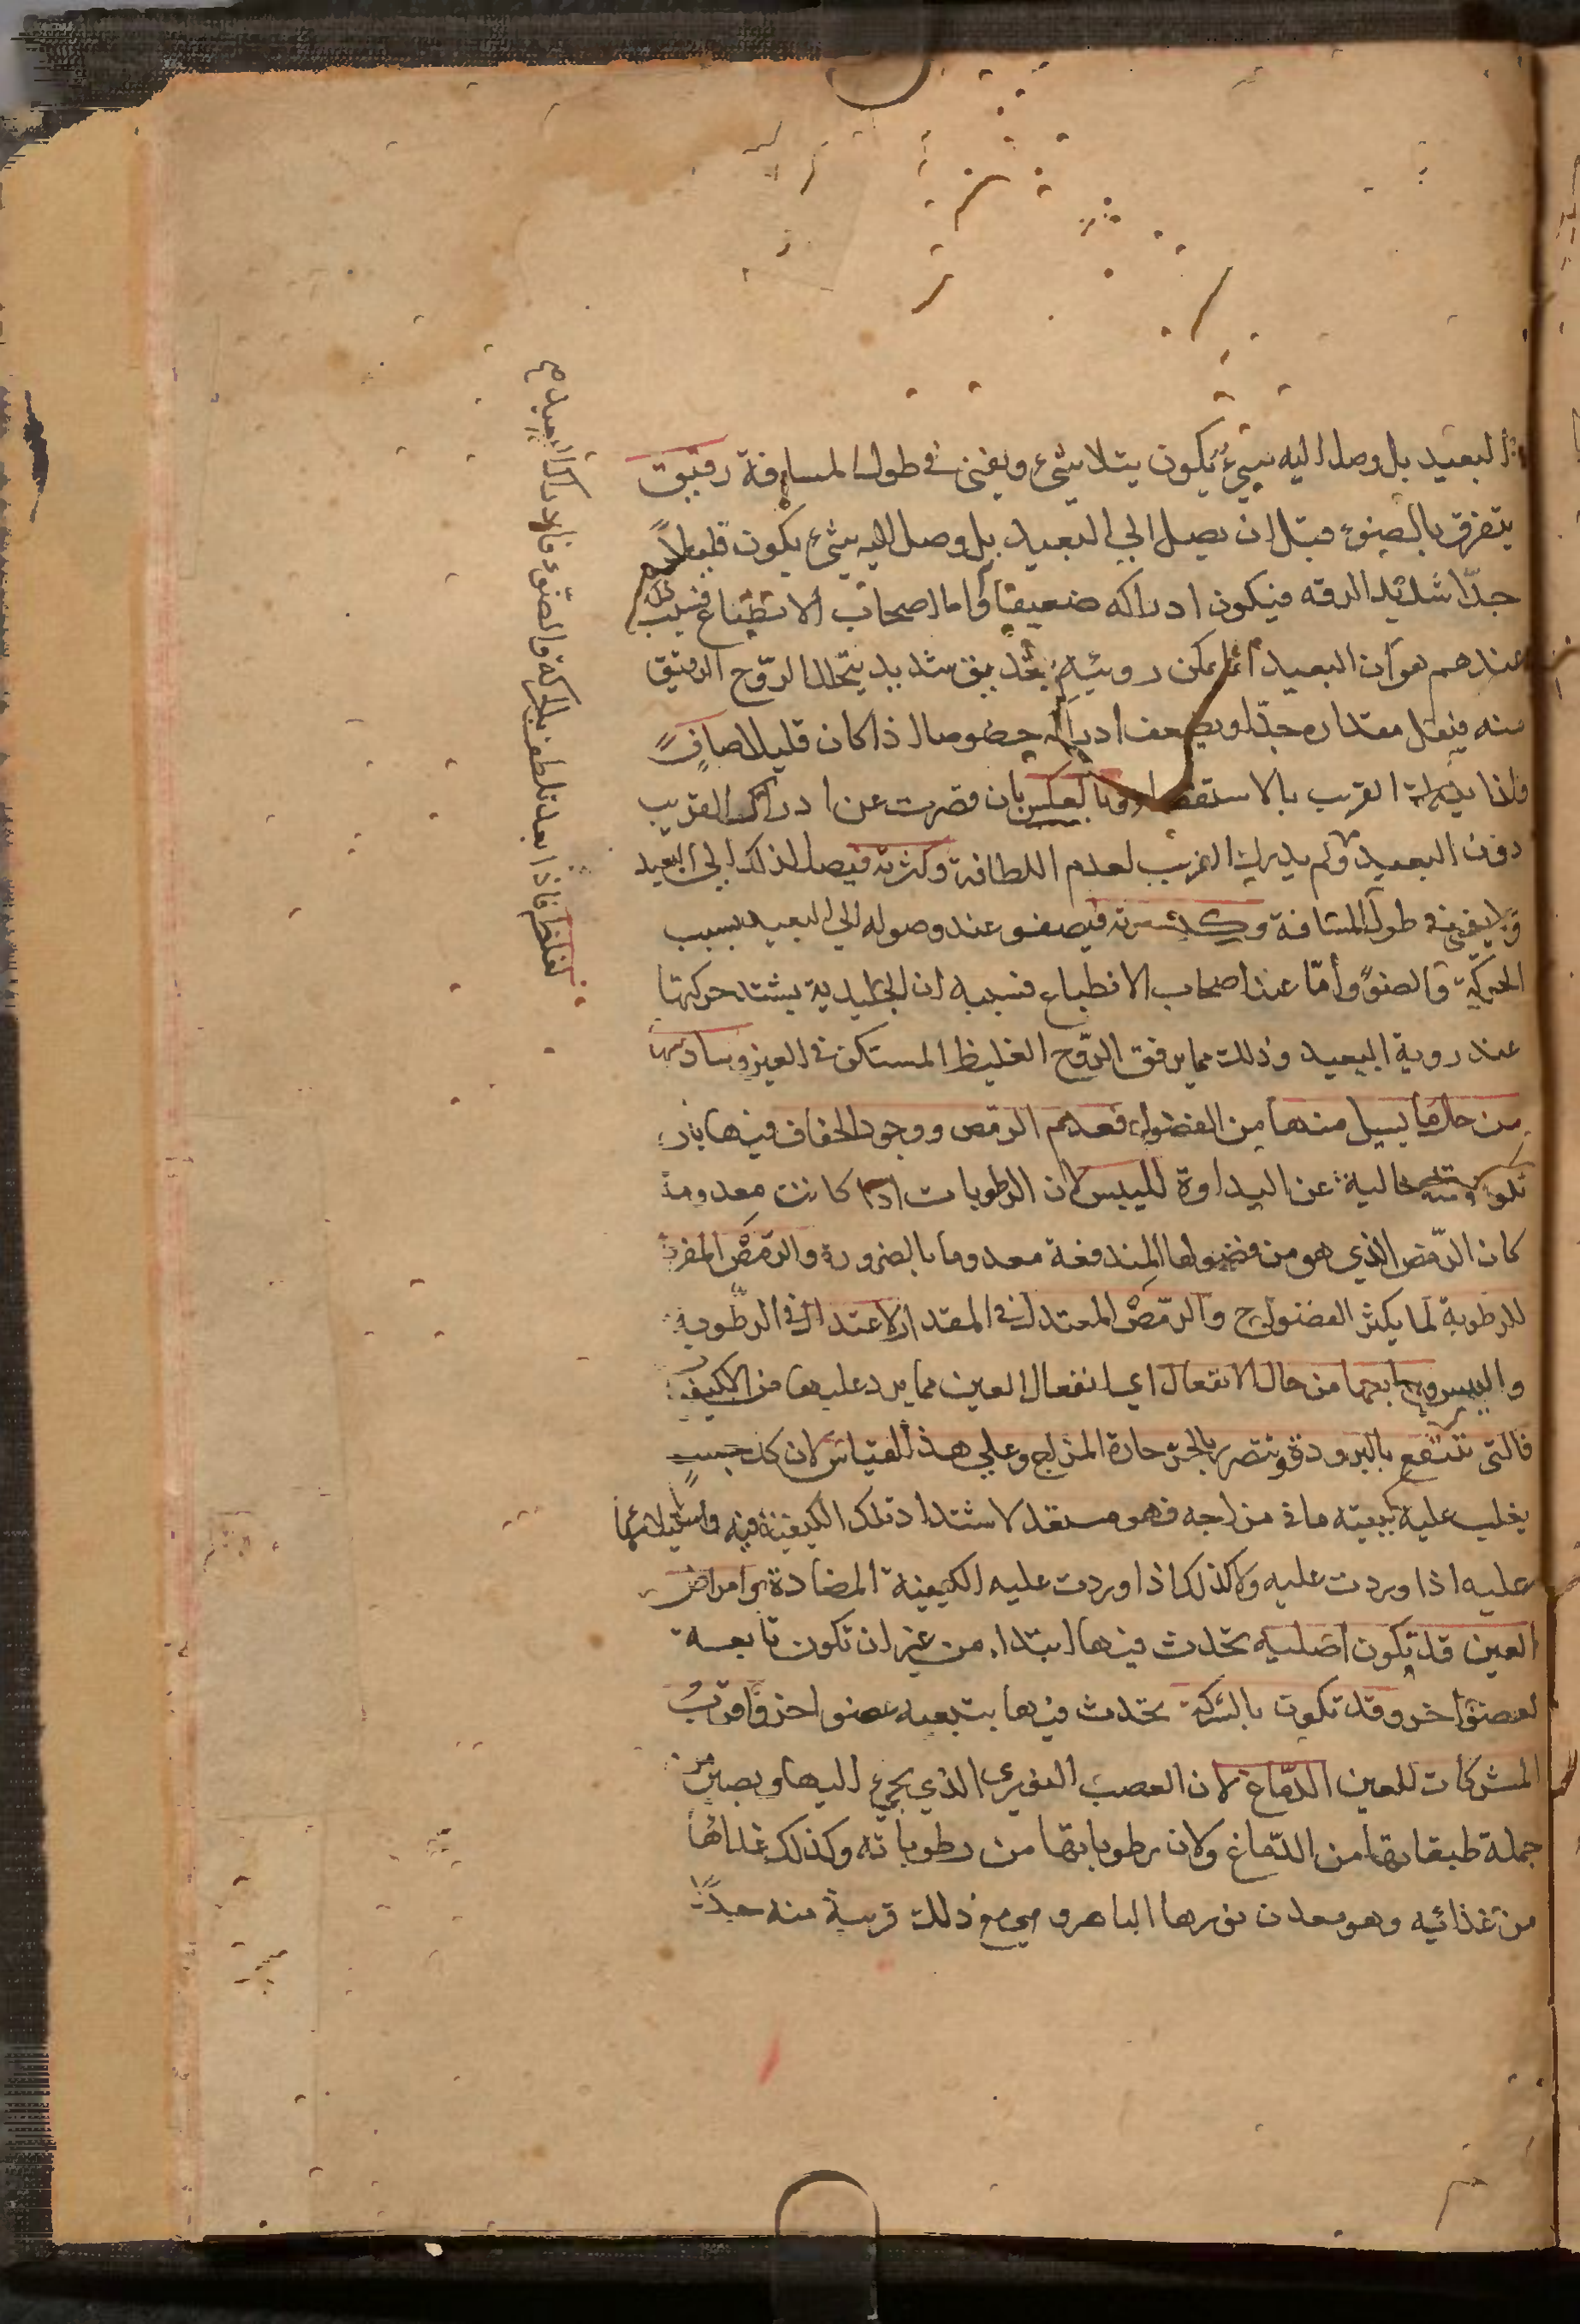 البعيد بل وصل اليه شيء يكون يتلاشي ويفني في طول المسافة رقيق
يتفرق بالضوء قبل ان يصل الي البعيد بل وصل اليه شيء يكون قليلا
جدّا شديد الرقه فيكون ادراكه ضعيفا واما اصحاب الانطباع فسبب
عندهم هو ان البعيد انما يمكن رويته بتحديق شديد يتحلل الروّح الرقيق
منه فيقل مقداره جدّا ويضعف ادراكه خصوصا اذا كان قليلا صافٍ
فلذا القريب بالاستقصا وبالعكس بان قصرت عن ادراك القريب
دون البعيد ولم يدرك القريب لعدم اللطافة وكثرته فيصل لذلك الي البعيد
ولا يفني في طول المسافة فيصفو عند وصوله الي البعيد بسبب
الحركة والضوّ وأمّا عند اصحاب الانطباع فسببه ان الجليدية يشتد حركتها
عند روية البعيد وذلك مما يرقق الروّح الغليظ المستكن في العين وسادسها
من حال ما يسيل منها من الفضول فعدم الرمص ووجود الجفاف فيها بان
تكون خالية عن النداوة لليبس لان الرطوبات اذا كانت معدومة
كان الرّمص الذي هو من فضولها المندفعة معدوما بالضرورة والرمَصْ المفرط
للرطوبة لما يكثر الفضول ح والرمَصْ المعتدل في المقدار لاعتدال في الرطوبة
واليبس وسابعها من حال الانفعال اي انفعال العين مما يرد عليها من الكيف
فالتي تنتفع بالبرودة وتتضر بالحرّ حارة المزاج وعلي هذا القياس لان كل جسم
يغلب عليه كيفية ما في مزاجه فهو مستعد لاشتداد تلك الكيفية فيه واستيلائها
عليه اذا وردت عليه ولا كذلك اذا وردت عليه الكيفية المضادة وامراض
العين قد تكون اصليه تحدث فيها ابتداء من غير ان تكون تابعة
لعضو اخر وقد تكون بالشركة تحدث فيها بتبعيه عضو اخر واقرب
المشركات للعين الدّماغ لان العصب النوري الذي يجيء اليها ويصير من
جملة طبقاتها من الدّماغ ولان رطوباتها من رطوباته وكذلك غذائها
من غذائيه وهو معدن نورها الباصر وهي مع ذلك قريبة منه جدّا
لغلظ فاذا بعد تلطف بالحركة والضّوء فادرك البعيد صح